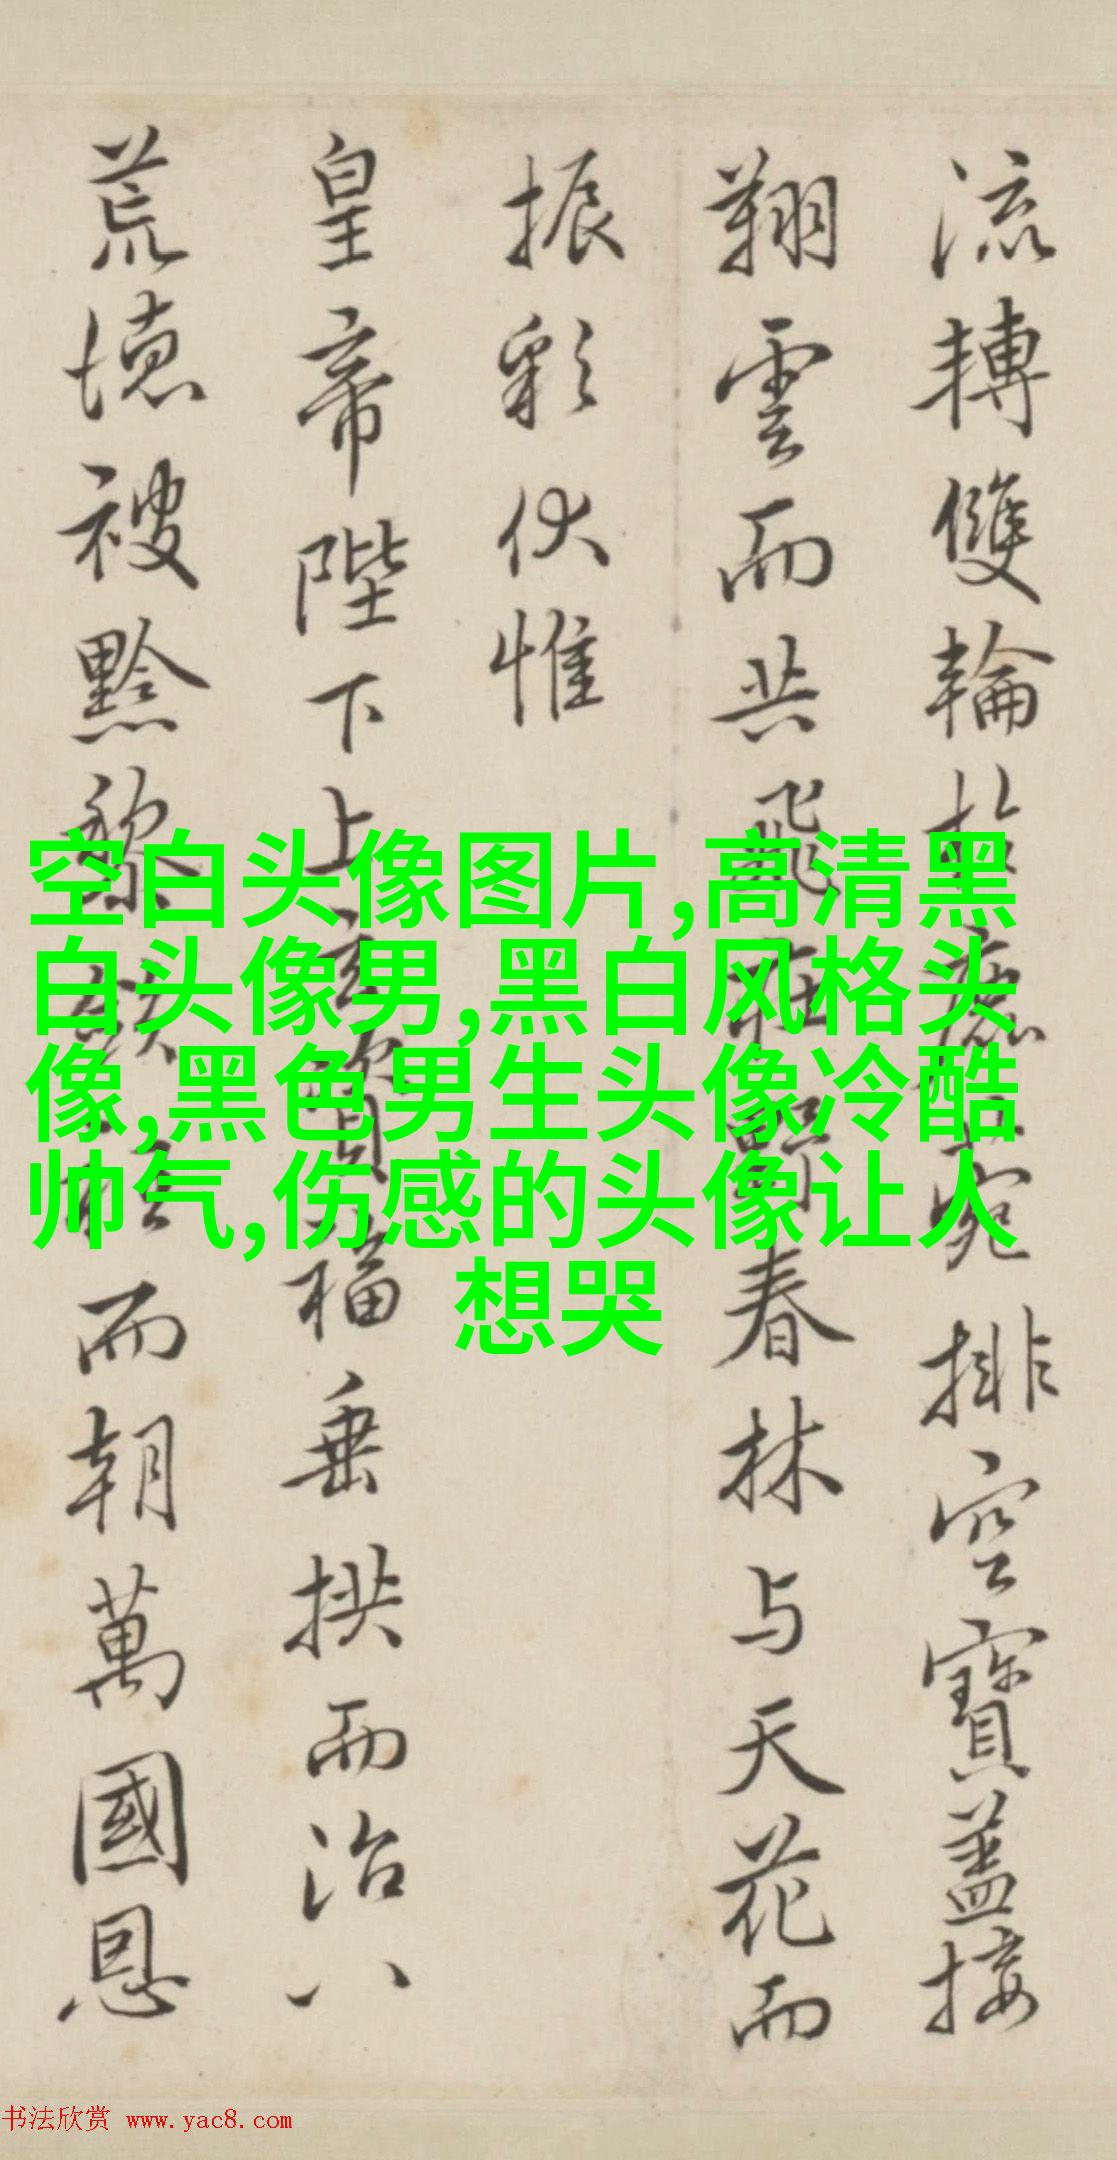 流轉雙輪於鹿菀排空寶蓋接
翔雲而共飛莊野春林与天花而
振彩伏惟
皇帝陛下上玄資福垂拱而治八
荒徳被黔黎斂衽而朝萬國恩
空白头像图片,高清黑
白头像男,黑白风格头
像,黑色男生头像冷酷
帅气,伤感的头像让人
想哭
书法欣赏 www.yac8.com